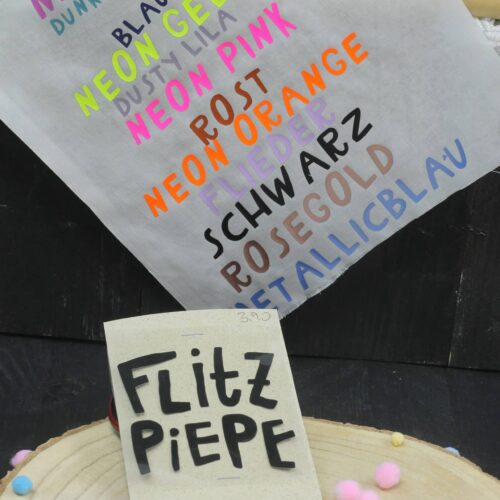 BLAU
NEON GELB
DUSTY LILA
NEON PINK
ROST
NEON ORANGE
FLIEDER
SCHWARZ
ROSEGOLD
METALLICBLAU
3,90
FLiTZ
PiEPE